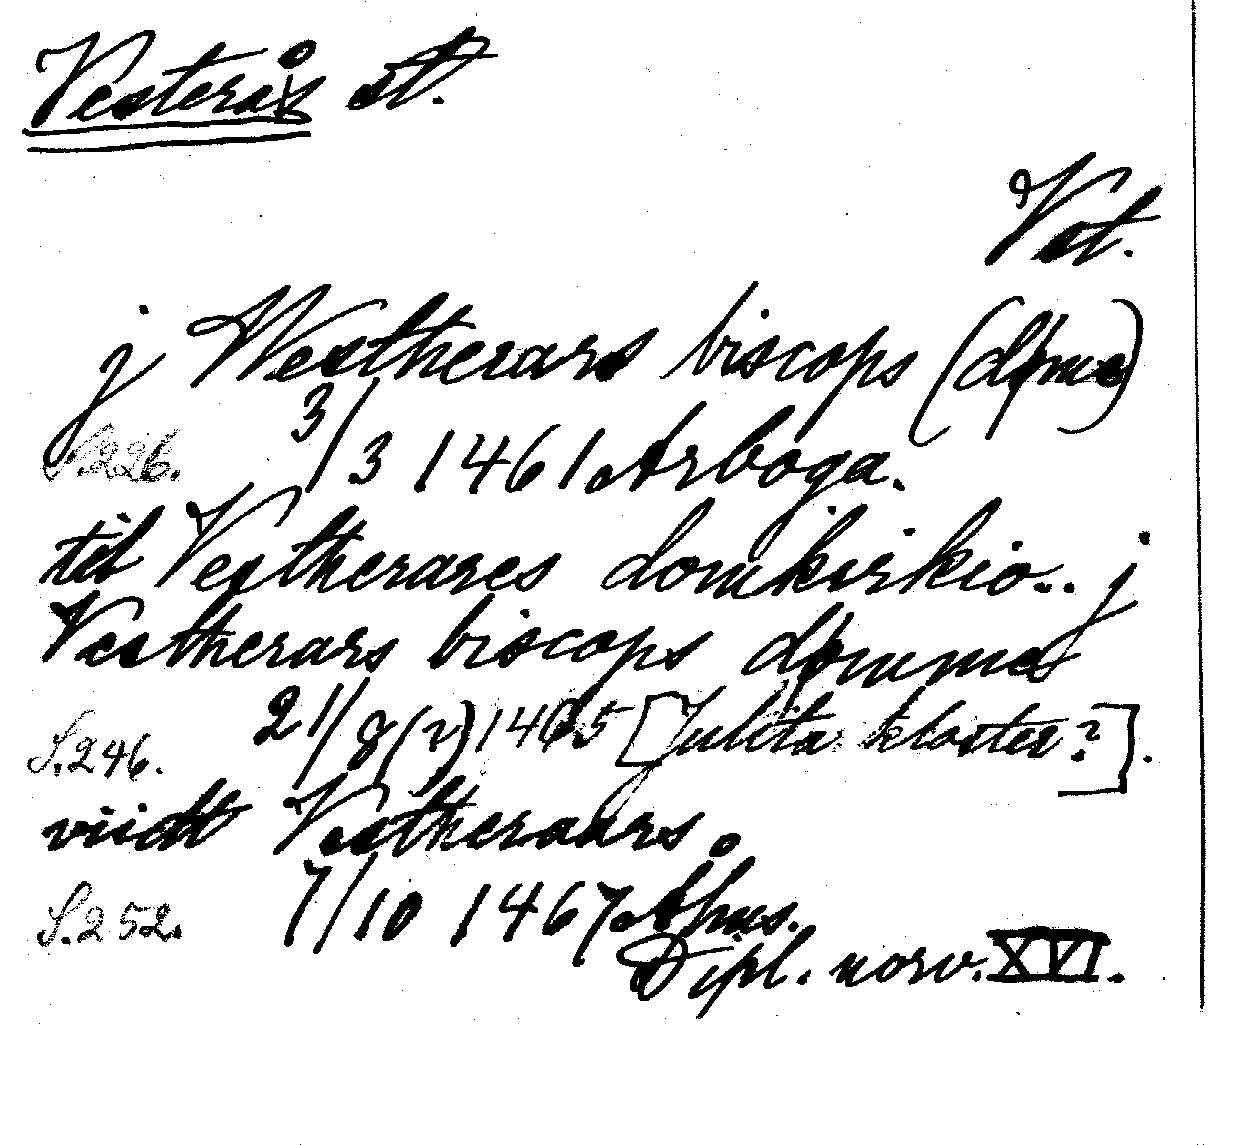 Vesterås st.
Vst.
j Westherars biscops (døme)
S. 226. 3/3 1461. Arboga.
til Vestherares domkirkio.. j
Vestherars biscops dømme
S. 246. 21/8(?) 1465 [Julita kloster?].
viidt Vestheraars.
S. 252. 7/10 1467. Åhus.
Dipl. norv. XVI.